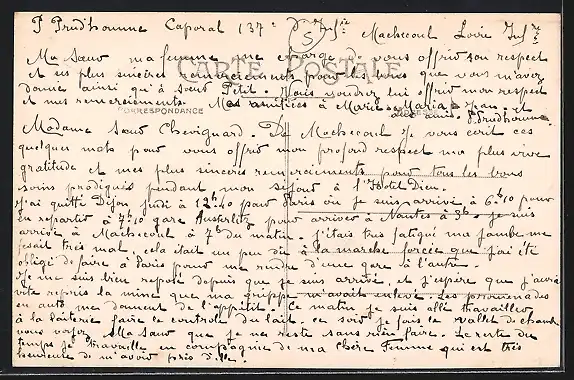 P Prudhomme Caporal 137e d'Infie (5) Machecoul Loire Infre
Ma Sœur ma femme me charge de vous offrir son respect
et ses plus sincères remerciements pour les bons que vous m'avez
donné ainsi qu'à sœur Petit. Vous voudrez lui offrir mon respect
et mes remerciements. Mes amitiés à Marie, Maria, Jean, et
autres amis. P. Prudhomme
CARTE POSTALE
CORRESPONDANCE
Madame Sœur Chevignard. De Machecoul je vous écrit ces
quelques mots pour vous offrir mon profond respect ma plus vive
gratitude et mes plus sincères remerciements pour tous les bons
soins prodigués pendant mon séjour à l'Hotel Dieu.
J'ai quitté Dijon jeudi à 12h40 pour Paris où je suis arrivé à 6h10 pour
en repartir à 7h10 gare Austerlitz pour arriver à Nantes à 3h je suis
arrivé à Machecoul à 7h du matin. J'étais très fatigué ma jambe me
fesait très mal, cela était un peu dû à la marche forcée que j'ai été
obligé de faire à Paris pour me rendre d'une gare à l'autre.
Je me suis bien reposé depuis que je suis arrivé, et j'espère que j'aurai
vite repris la mine que ma grippe m'avait enlevé. Les promenades
en auto me donnent de l'appétit. Ce matin je suis allé travailler
à la laiterie faire le contrôle du lait, ce soir je fais le valet de chambre
vous voyez Ma Sœur que je ne reste sans rien faire. Le reste du
temps je travaille en compagnie de ma chère Femme qui est très
heureuse de m'avoir près d'elle.